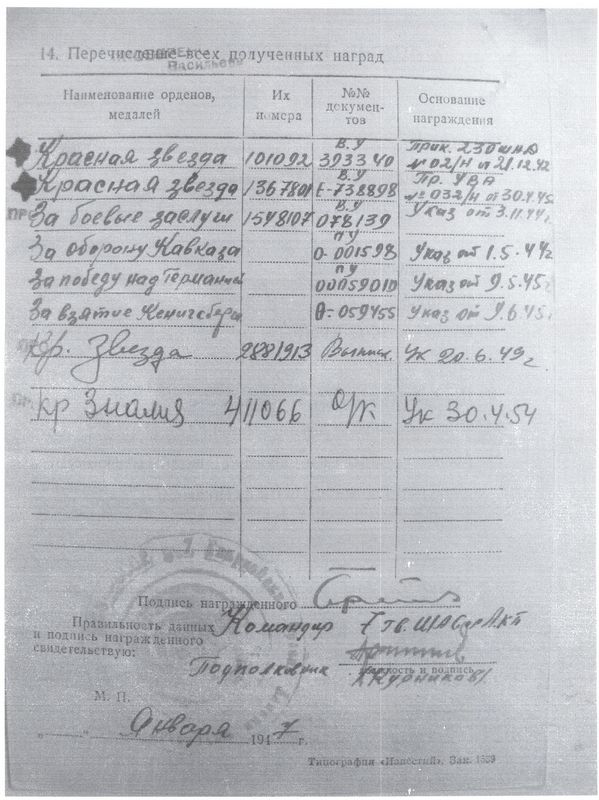 14. Перечисление всех полученных наград
Васильевн
Наименование орденов, медалей
Их номера
№№ докумен-тов
Основание награждения
Красная звезда 101092 В.У 393340 Прик. 230 шад № 02/н от 21.12.42
Красная звезда 1367801 В.У Е-738898 Пр. УВА № 032/н от 30.4.45
За боевые заслуги 1548107 В.У 078139 Указ от 3.11.44г.
За оборону Кавказа ПУ О-001598 Указ от 1.5.44г
За победу над Германией ПУ 00059010 Указ от 9.5.45г
За взятие Кенигсберга 059455 Указ от 9.6.45г
Кр. Звезда 2881913 Выпис. Ук 20.6.49г
Кр Знамя 411066 О/К Ук 30.4.54
Подпись награжденного
Правильность данных
и подпись награжденного
свидетельствую:
Командир 7 гв. ШАП
Подполковник
должность и подпись
М. П.
„ “ Января 1947 г.
Типография «Известий». Зак. 1589